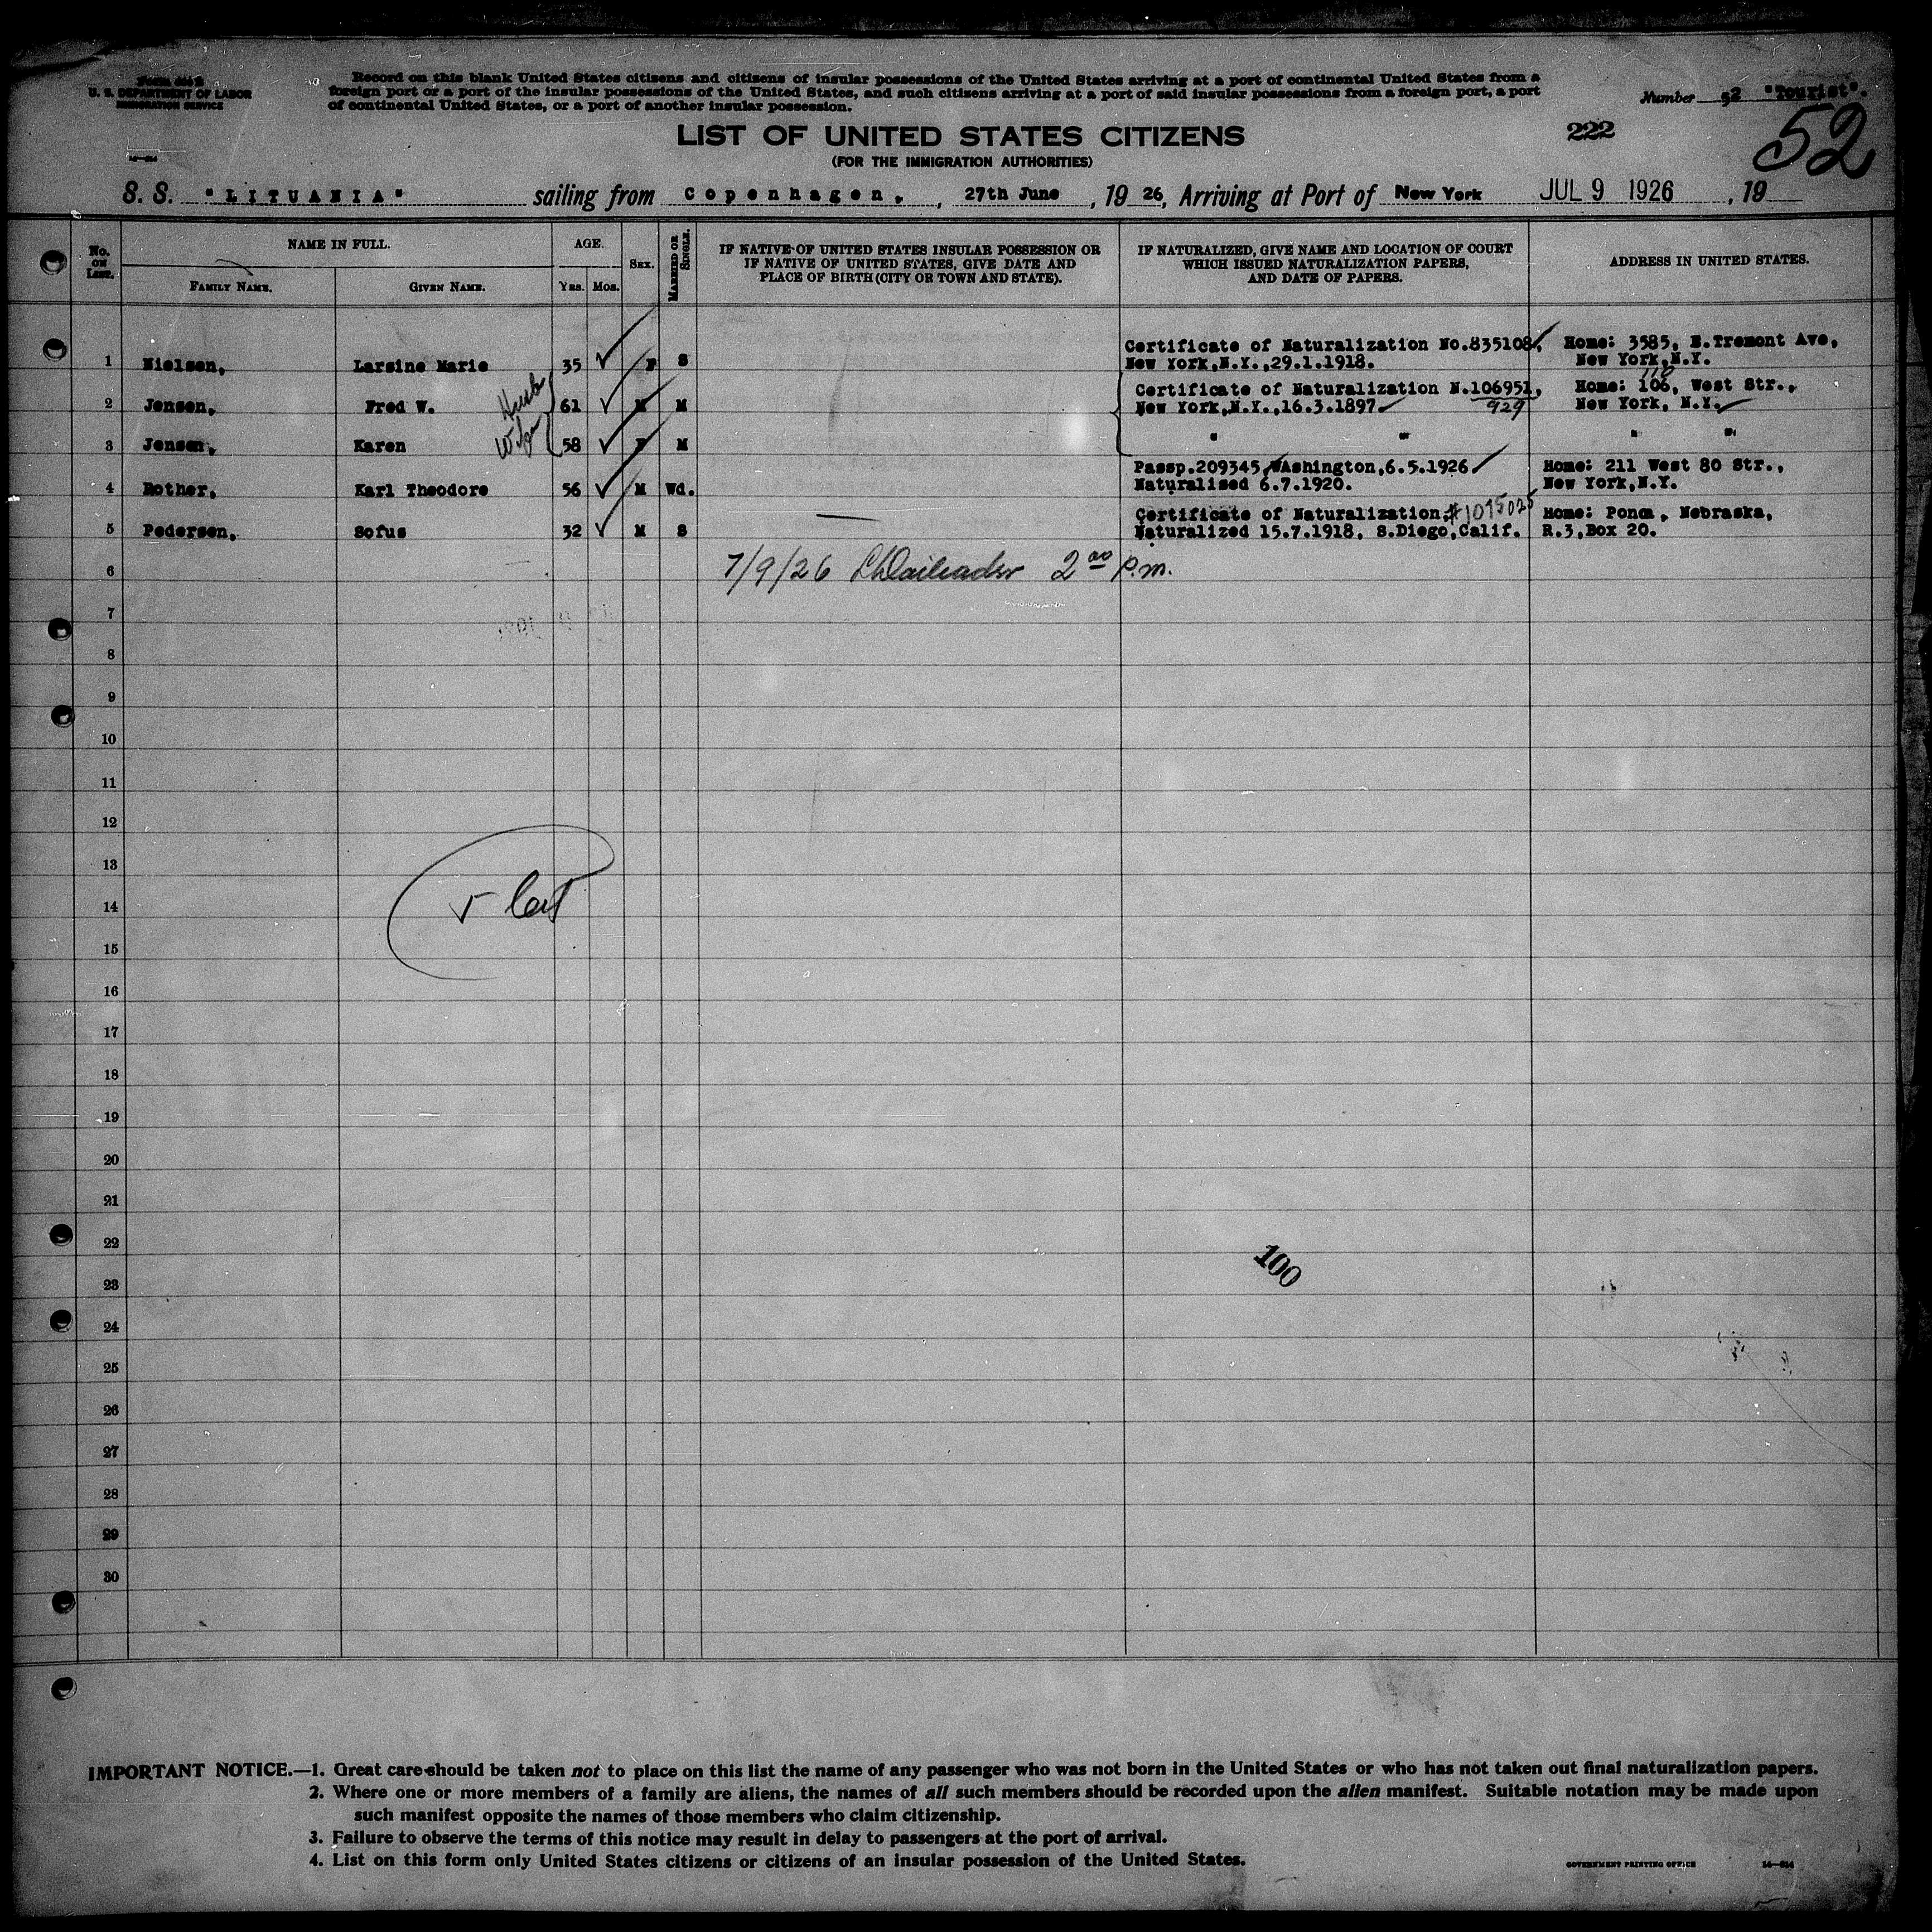 U. S. DEPARTMENT OF LABOR
IMMIGRATION SERVICE
Record on this blank United States citizens and citizens of insular possessions of the United States arriving at a port of continental United States from a
foreign port or a port of the insular possessions of the United States, and such citizens arriving at a port of said insular possessions from a foreign port, a port
of continental United States, or a port of another insular possession.
Number 52 "Tourist".
52
222
LIST OF UNITED STATES CITIZENS
(FOR THE IMMIGRATION AUTHORITIES)
S. S. "LITUANIA" sailing from Copenhagen, , 27th June , 19 26, Arriving at Port of New York JUL 9 1926 , 19
No. ON LIST.
NAME IN FULL.
FAMILY NAME.
GIVEN NAME.
AGE.
YRS. MOS.
SEX.
MARRIED OR SINGLE.
IF NATIVE OF UNITED STATES INSULAR POSSESSION OR
IF NATIVE OF UNITED STATES, GIVE DATE AND
PLACE OF BIRTH (CITY OR TOWN AND STATE).
IF NATURALIZED, GIVE NAME AND LOCATION OF COURT
WHICH ISSUED NATURALIZATION PAPERS,
AND DATE OF PAPERS.
ADDRESS IN UNITED STATES.
1 Nielsen, Larsine Marie 35 F S Certificate of Naturalization No.835108, New York,N.Y.,29.1.1918. Home: 3585, E.Tremont Ave, New York,N.Y.
2 Jensen, Fred W. Husb 61 M M Certificate of Naturalization N.106951, 929 New York,N.Y.,16.3.1897 Home: 106, 110 West Str., New York, N.Y.
3 Jensen, Karen Wife 58 F M " " " "
4 Rother, Karl Theodore 56 M Wd. Passp.209345,WAshington,6.5.1926 Naturalised 6.7.1920. Home: 211 West 80 Str., New York,N.Y.
5 Pedersen, Sofus 32 M S Certificate of Naturalization #1075025 Naturalized 15.7.1918, S.Diego,Calif. Home: Ponca, Nebraska, R.3,Box 20.
6 7/9/26 2 00 P.m.
7
8
9
10
11
12
13
14
15
16
17
18
19
20
21
22
100
23
24
25
26
27
28
29
30
IMPORTANT NOTICE.—1. Great care should be taken not to place on this list the name of any passenger who was not born in the United States or who has not taken out final naturalization papers.
2. Where one or more members of a family are aliens, the names of all such members should be recorded upon the alien manifest. Suitable notation may be made upon
such manifest opposite the names of those members who claim citizenship.
3. Failure to observe the terms of this notice may result in delay to passengers at the port of arrival.
4. List on this form only United States citizens or citizens of an insular possession of the United States.
GOVERNMENT PRINTING OFFICE